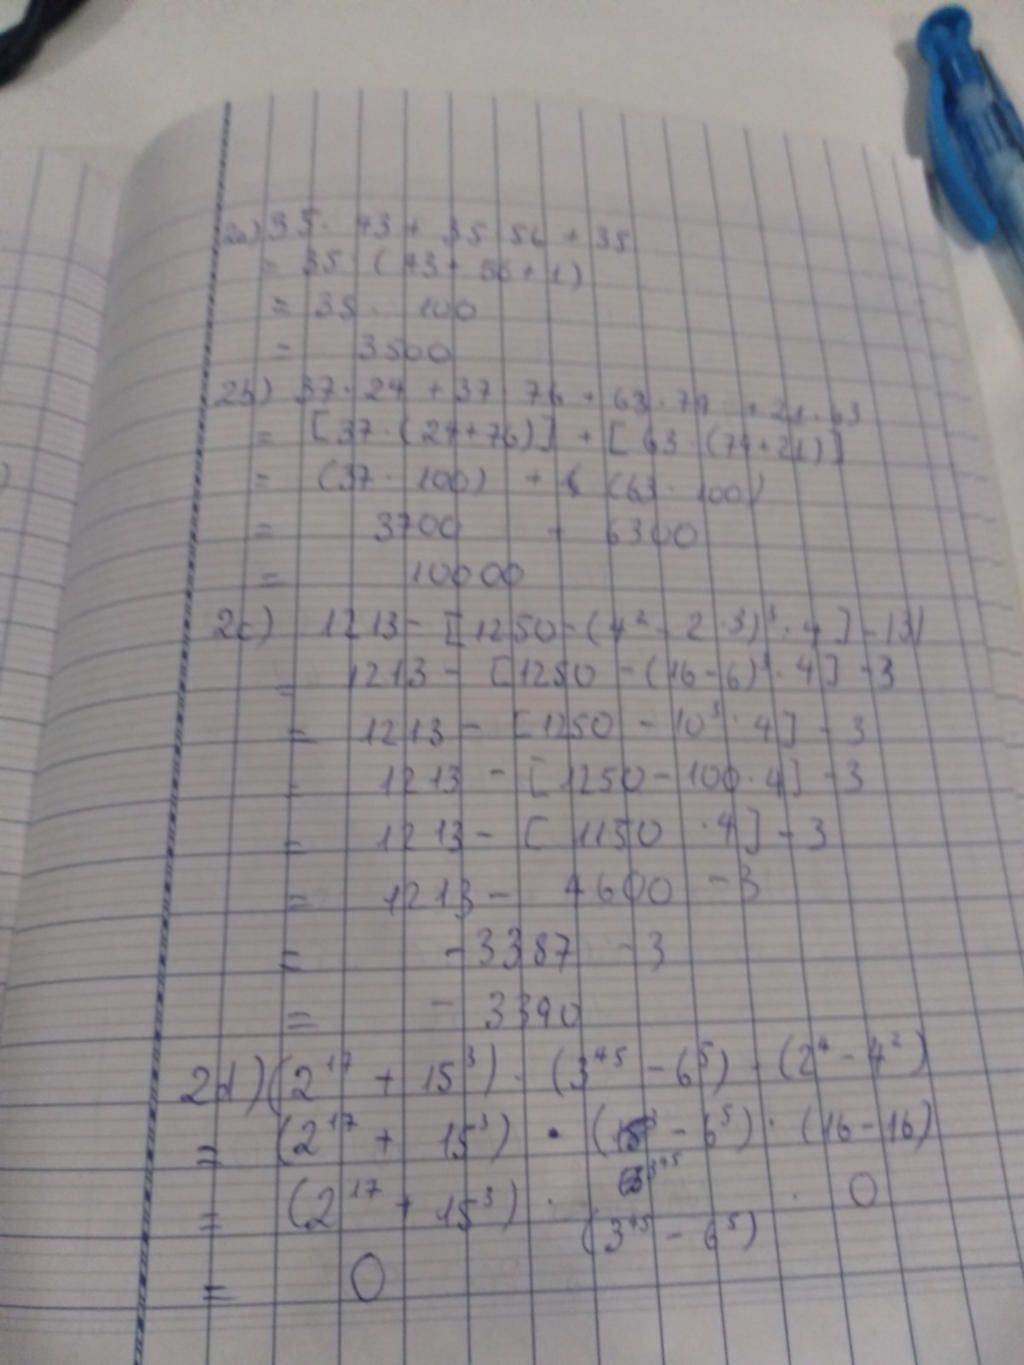 2a) 35 · 43 + 35 · 56 + 35
= 35 · (43 + 56 + 1)
= 35 · 100
= 3500
2b) 37 · 24 + 37 · 76 + 63 · 79 + 21 · 63
= [37 · (24+76)] + [63 · (79+21)]
= (37 · 100) + (63 · 100)
= 3700 + 6300
= 10000
2c) 1213 - [1250 - (4² - 2 · 3)³ · 4] - |3|
= 1213 - [1250 - (16 - 6)³ · 4] - 3
= 1213 - [1250 - 10³ · 4] - 3
= 1213 - [1250 - 100 · 4] - 3
= 1213 - [1150 · 4] - 3
= 1213 - 4600 - 3
= -3387 - 3
= - 3390
2d) (2¹⁷ + 15³) · (3⁴⁵ - 6⁵) · (2⁴ - 4²)
= (2¹⁷ + 15³) · ( - 6⁵) · (16 - 16)
= (2¹⁷ + 15³) · (3⁴⁵ - 6⁵) · 0
= 0